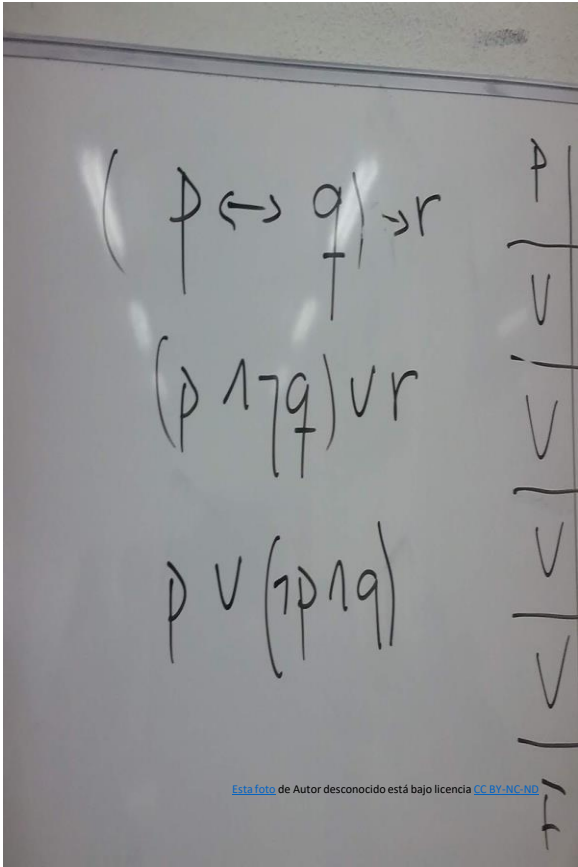 (p ↔ q) → r
(p ∧ ¬q) ∨ r
p ∨ (¬p ∧ q)
P
V
V
V
V
F
Esta foto de Autor desconocido está bajo licencia CC BY-NC-ND